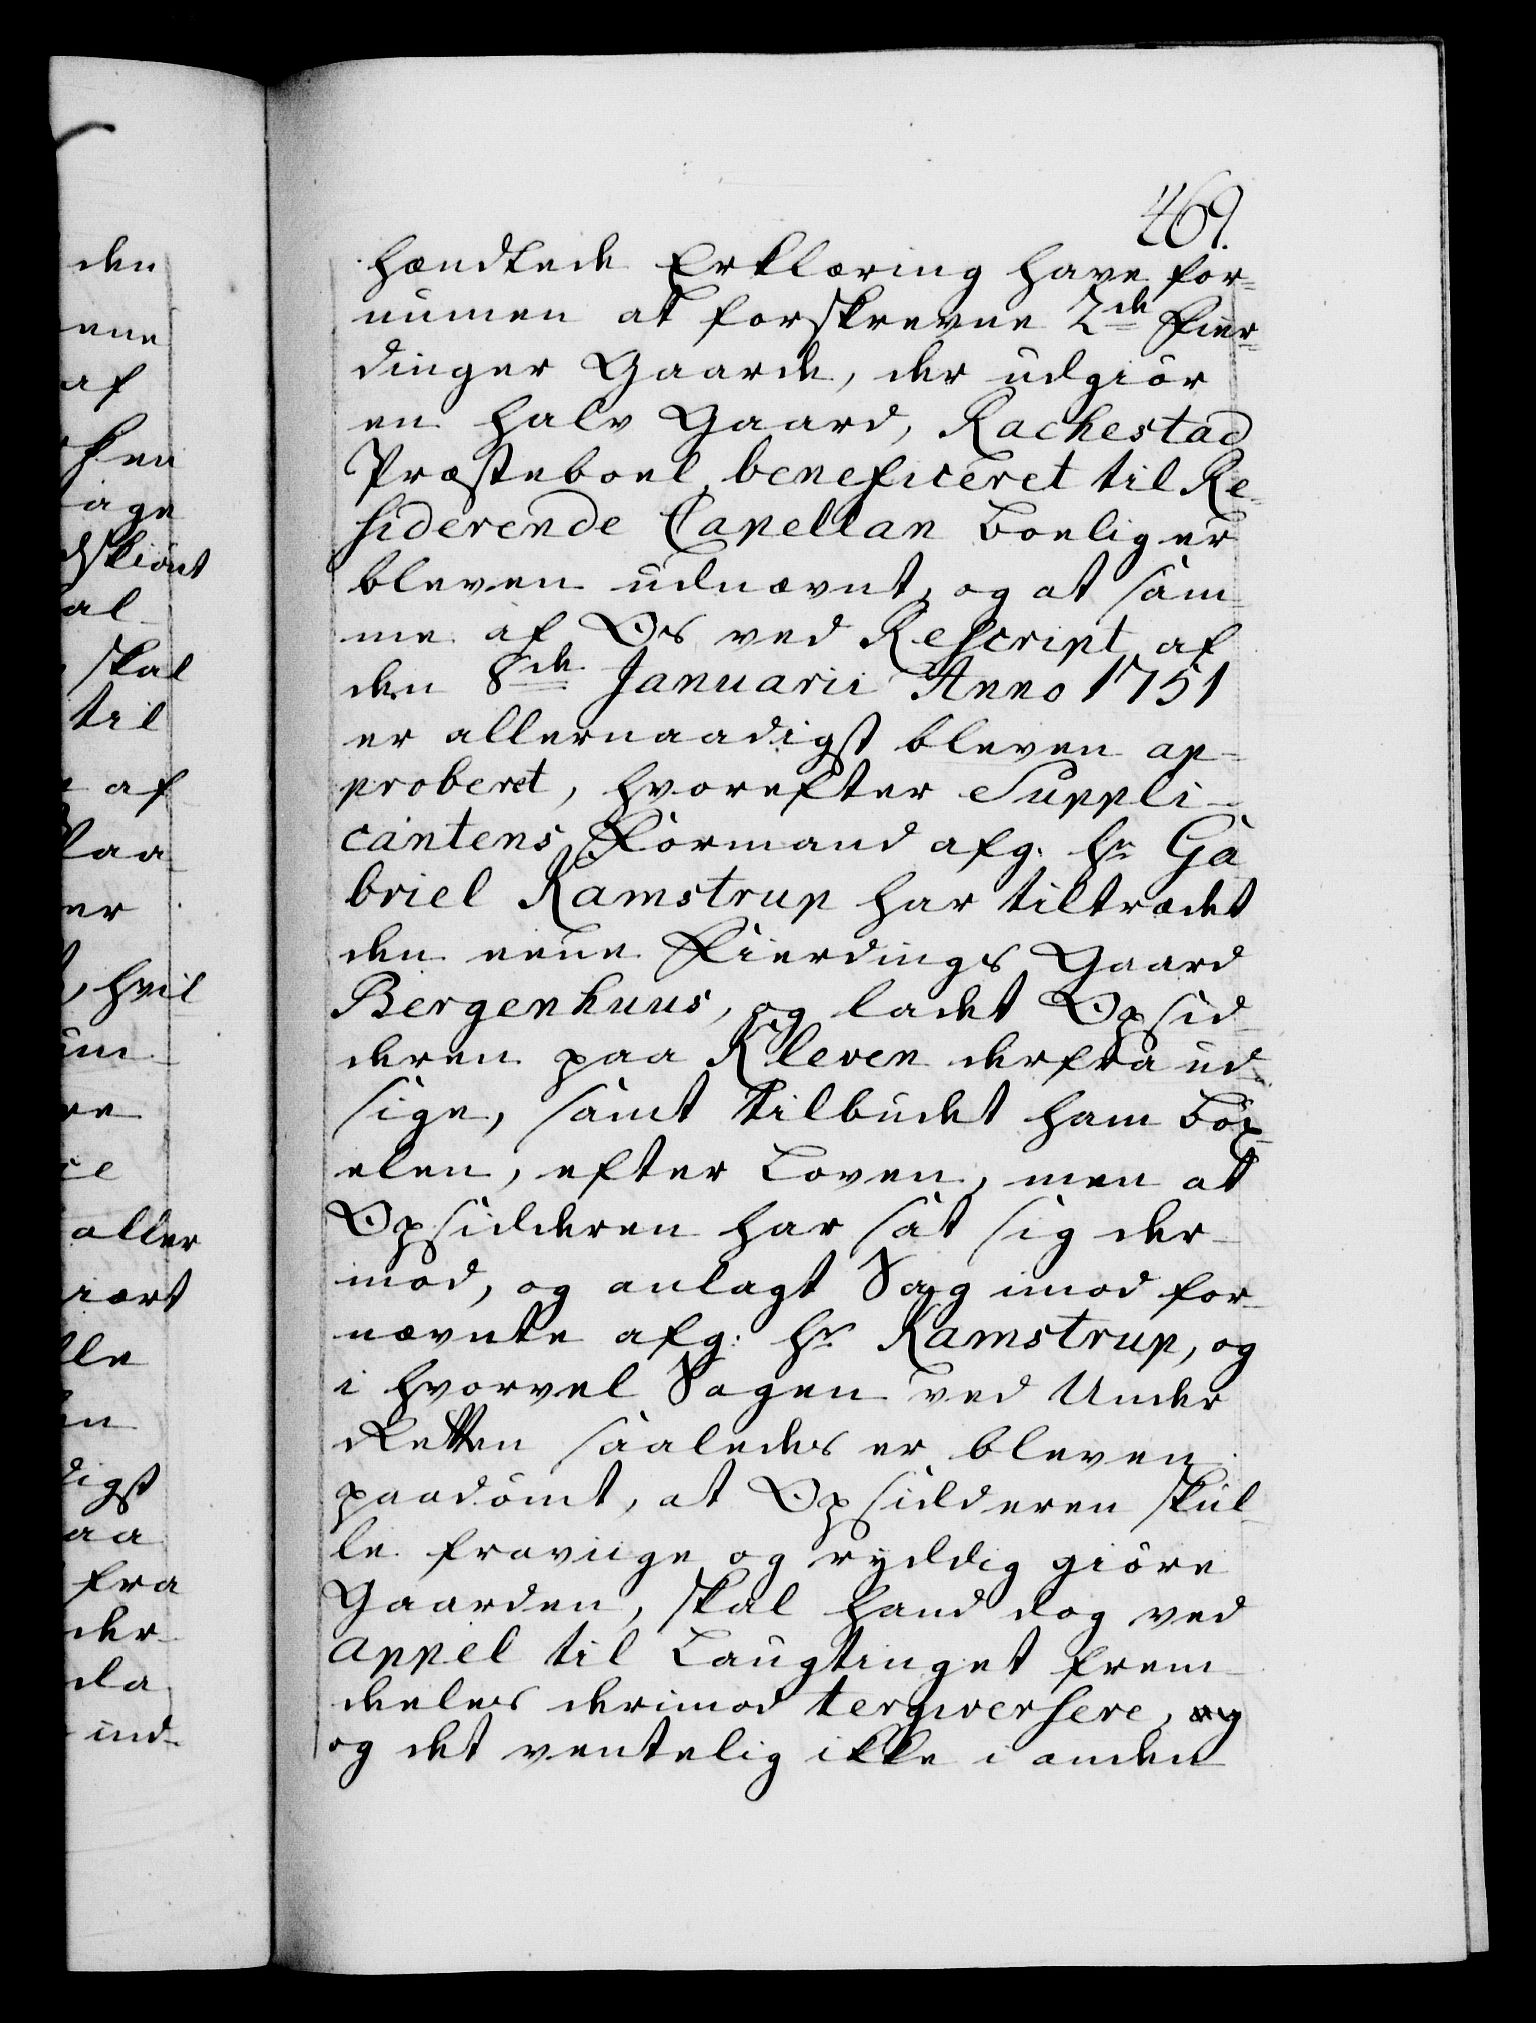 469.
hændtede Erklæring have for-
nummen at forskrevne 2de Fier-
dinger Gaarde, der udgiör
en halv Gaard, Rachestad
Præsteboel, beneficeret til Re-
siderende Capellan Boelig er
bleven udnævnt, og at sam-
me af Os ved Rescript af
den 8de Januarii Anno 1751
er allernaadigst bleven ap-
proberet, hvorefter Suppli-
cantens Formand afg. Hr Ga
briel Ramstrup har tiltrædet
den eene Fierdings Gaard
Bergenhuus, og ladet Opsid-
deren paa Kleven derfra ud-
sige, samt tilbudet ham Böx-
elen, efter Loven, men at
Opsidderen har sat sig der-
imod, og anlagt Sag imod for-
nævnte afg: Hr Ramstrup, og
i hvorvel Sagen ved Under
Retten saaledes er bleven
paadömt, at Opsidderen skul-
le fraviige og ryddig giöre
Gaarden, skal hand dog ved
appel til Laugtinget frem-
deeles derimod tergiversere,
og det ventelig ikke i anden
den
ene
af
age
skiönt
al-
skal
til
af
aa
er
, hvil
um-
re
aller
iært
lle
en
digst
aa
fra
der-
da
ind-